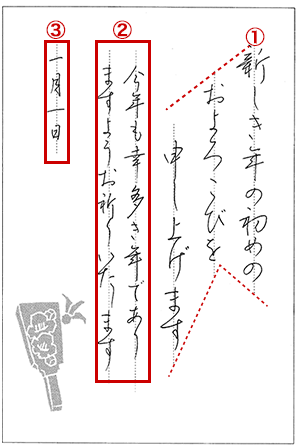 ①
新しき年の初めの
およろこびを
申し上げます
②
今年も幸多き年であり
ますようお祈りいたします
③
一月一日